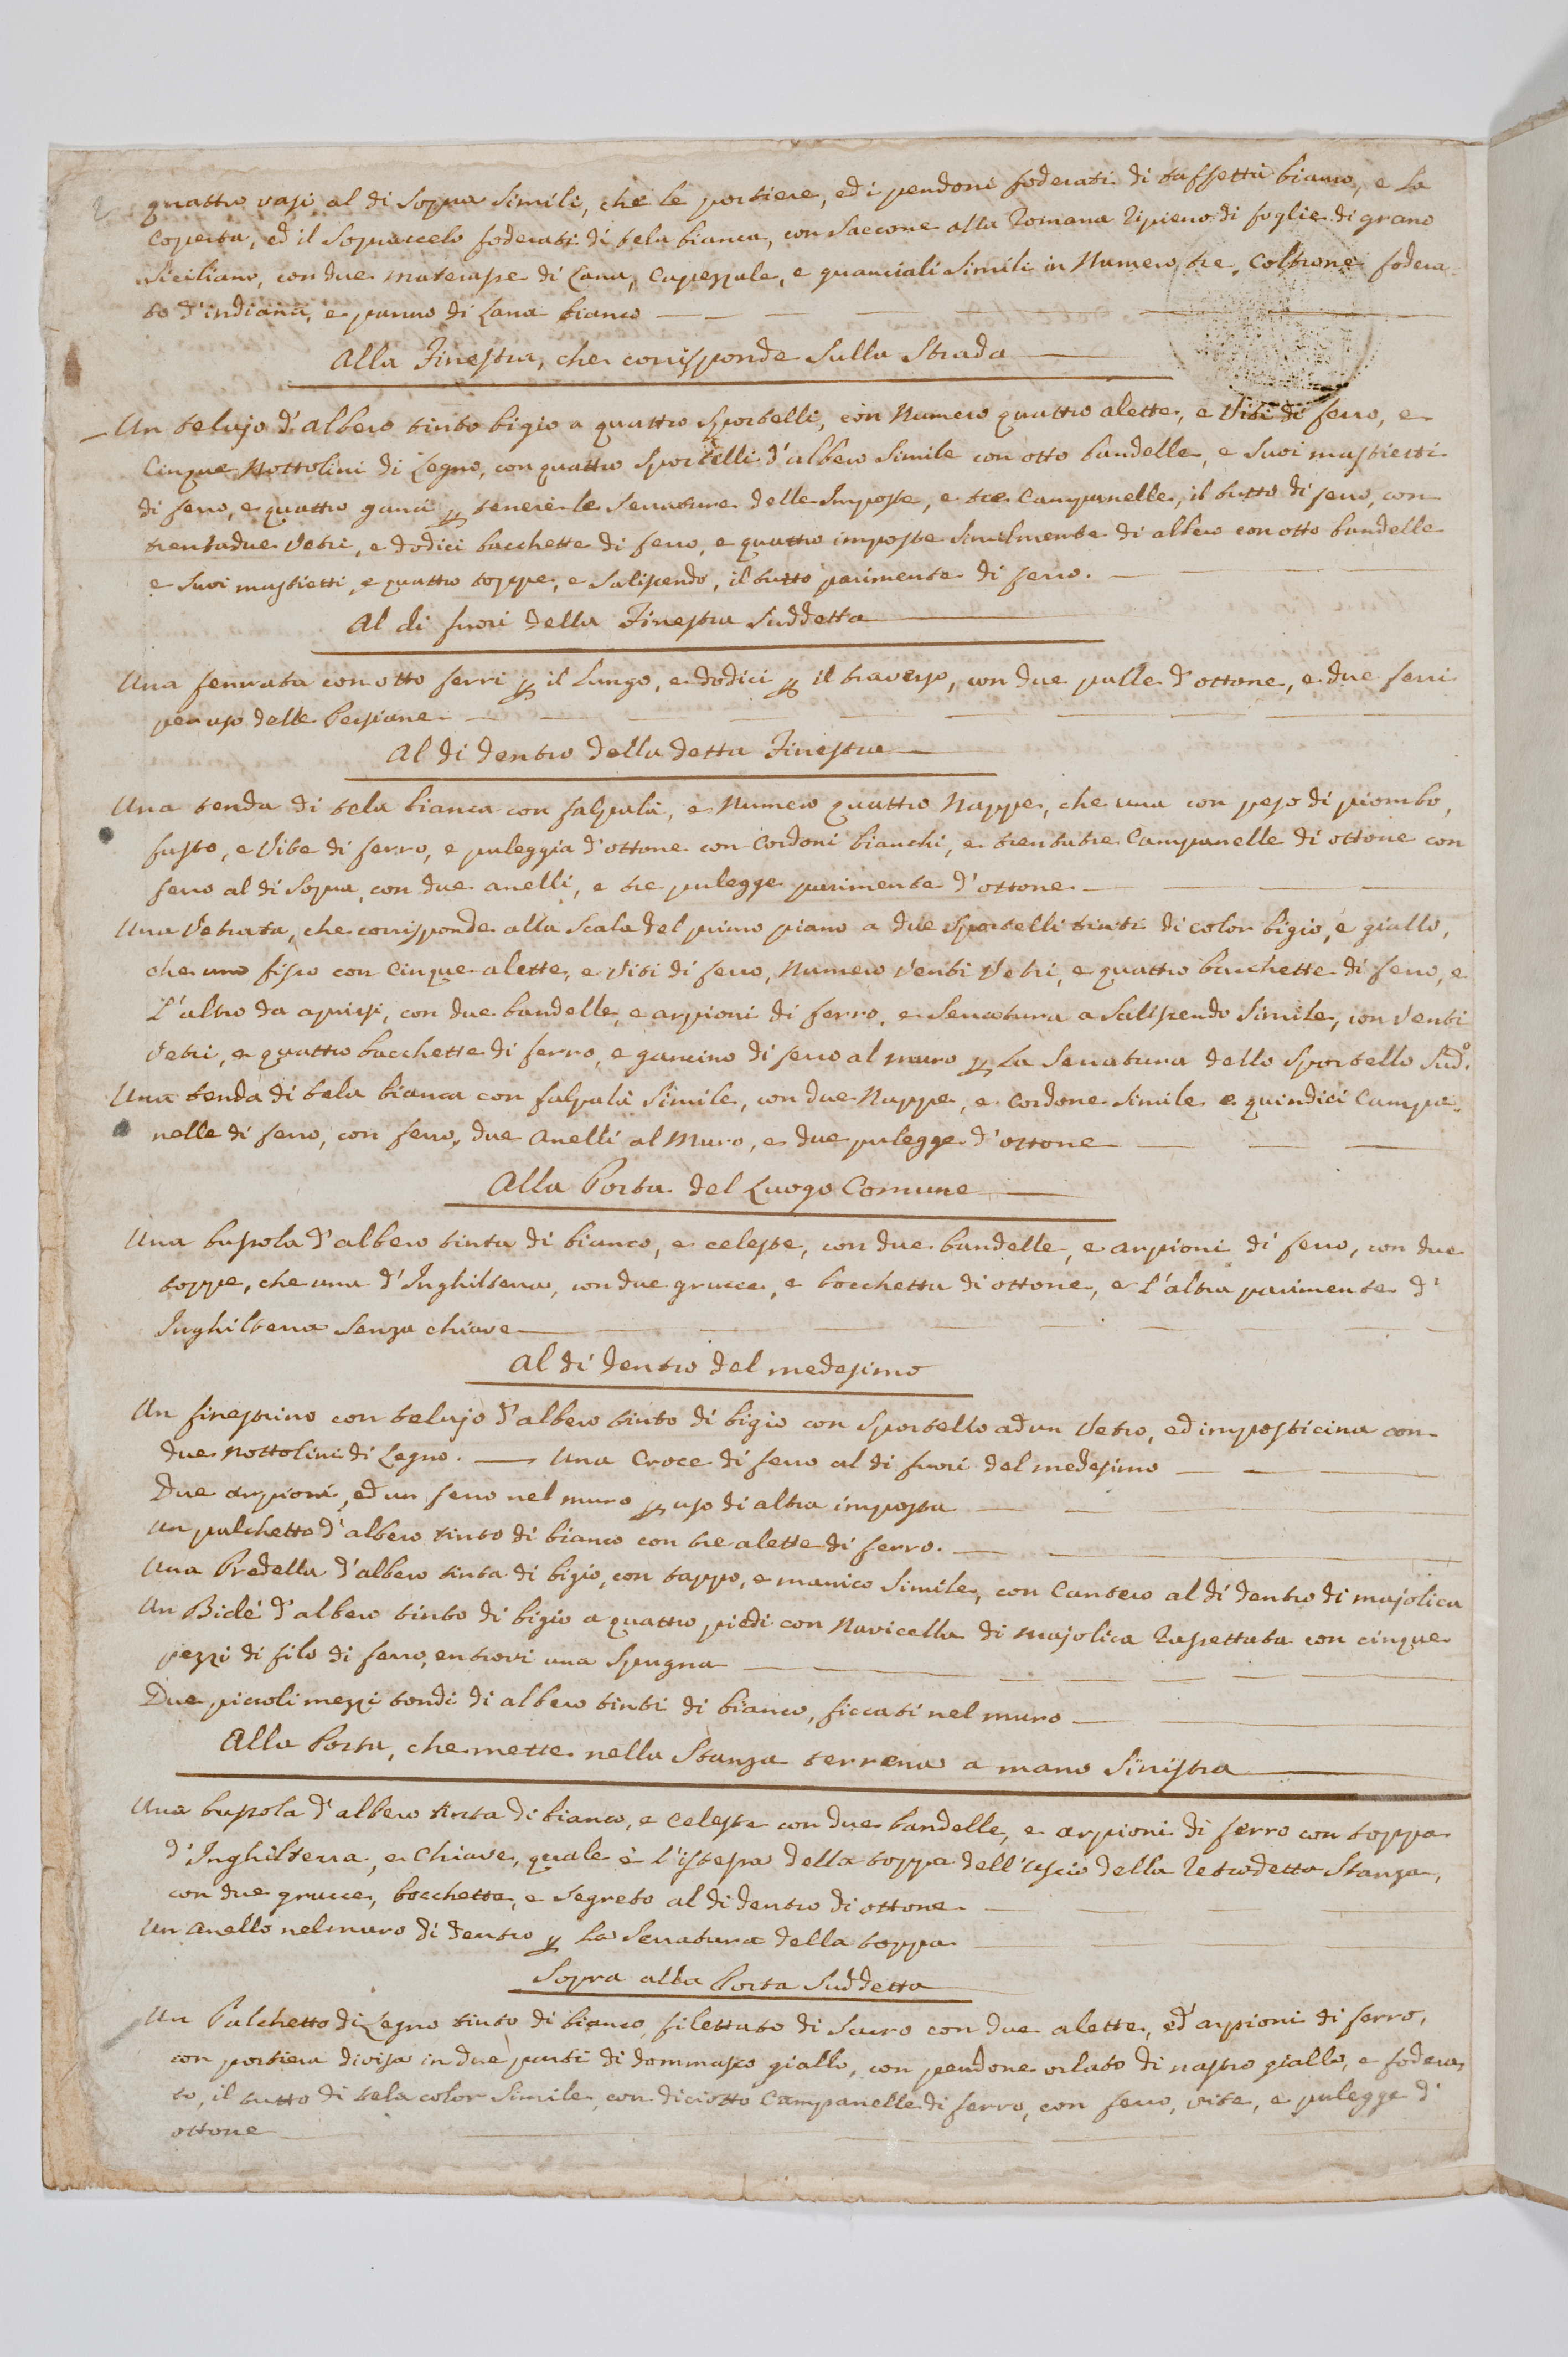 quattro vasi al di sopra simili, che le portiere, ed i pendoni foderati di taffettà bianco, e la
Coperta, ed il Sopraccelo foderati di tela bianca, con Saccone alla Romana ripieno di foglie di grano
Siciliano, con due materasse di Lana, Capezzale, e guanciali simili in Numero tre, Coltrone fodera-
to d'indiana, e panno di Lana bianco
Alla Finestra, che corrisponde sulla Strada
Un telajo d'albero tinto bigio a quattro Sportelli, con Numero quattro alette, e Viti di ferro, e
Cinque Nottolini di Legno, con quattro Sportelli d'albero Simile con otto bandelle, e Suoi mastietti
di ferro, e quattro ganci p tenere le Serrature delle Imposte, e tre Campanelle, il tutto di ferro, con
trentadue Vetri, e dodici bacchette di ferro, e quattro imposte similmente di albero con otto bandelle
e Suoi mastietti, e quattro toppe, e Saliscendo, il tutto parimente di ferro.
Al di fuori della Finestra Suddetta
Una ferrata con otto ferri p il Lungo, e dodici p il traverso, con due palle d'ottone, e due ferri
per uso delle Persiane
Al di dentro della detta Finestra
Una tenda di tela bianca con falpalà, e Numero quattro Nappe, che una con peso di piombo,
fusto, e Vite di ferro, e puleggia d'ottone con Cordoni bianchi, e trentatre Campanelle di ottone con
ferro al di Sopra, con due anelli, e tre pulegge parimente d'ottone
Una Vetrata, che corrisponde alla Scala del primo piano a due Sportelli tinti di color bigio, e giallo,
che uno fisso con Cinque alette, e Viti di ferro, Numero Venti Vetri, e quattro bacchette di ferro, e
L'altro da aprirsi, con due bandelle, e arpioni di ferro, e Serratura a Saliscendo Simile, con Venti
Vetri, e quattro bacchette di ferro, e gancino di ferro al muro p La Serratura dello Sportello Sudo.
Una tenda di tela bianca con falpalà Simile, con due Nappe, e Cordone Simile e quindici Campa-
nelle di ferro, con ferro, due Anelli al Muro, e due pulegge d'ottone
Alla Porta del Luogo Comune
Una bussola d'albero tinta di bianco, e celeste, con due bandelle, e arpioni di ferro, con due
toppe, che una d'Inghilterra, con due grucce, e bocchetta di ottone, e L'altra parimente d'
Inghilterra Senza chiave
Al di dentro del medesimo
Un finestrino con telajo d'albero tinto di bigio con Sportello ad un Vetro, ed imposticina con
due Nottolini di Legno. Una Croce di ferro al di fuori del medesimo
Due arpioni, ed un ferro nel muro p uso di altra imposta
Un palchetto d'albero tinto di bianco con tre alette di ferro.
Una Predella d'albero tinta di bigio, con tappo, e manico Simile, con Cantero al di dentro di majolica
Un Bidè d'albero tinto di bigio a quattro piedi con Navicella di majolica Raspettata con cinque
pezzi di filo di ferro, entrovi una Spugna
Due piccoli mezzi tondi di albero tinti di bianco, ficcati nel muro
Alla Porta, che mette nella Stanza terrena a mano Sinistra
Una bussola d'albero tinta di bianco, e Celeste con due bandelle, e arpioni di ferro con toppa
d'Inghilterra, e Chiave, quale è l'istessa della toppa dell'uscio della Retrodetta Stanza,
con due grucce, bocchetta, e Segreto al di dentro di ottone
Un Anello nel muro di dentro p La Serratura della toppa
Sopra alla Porta Suddetta
Un Palchetto di Legno tinto di bianco filettato di Scuro con due alette, ed arpioni di ferro,
con portiera divisa in due parti di dommasco giallo, con pendone orlato di nastro giallo, e fodera-
to, il tutto di tela color Simile, con diciotto Campanelle di ferro, con ferro, vite, e pulegge d'
ottone